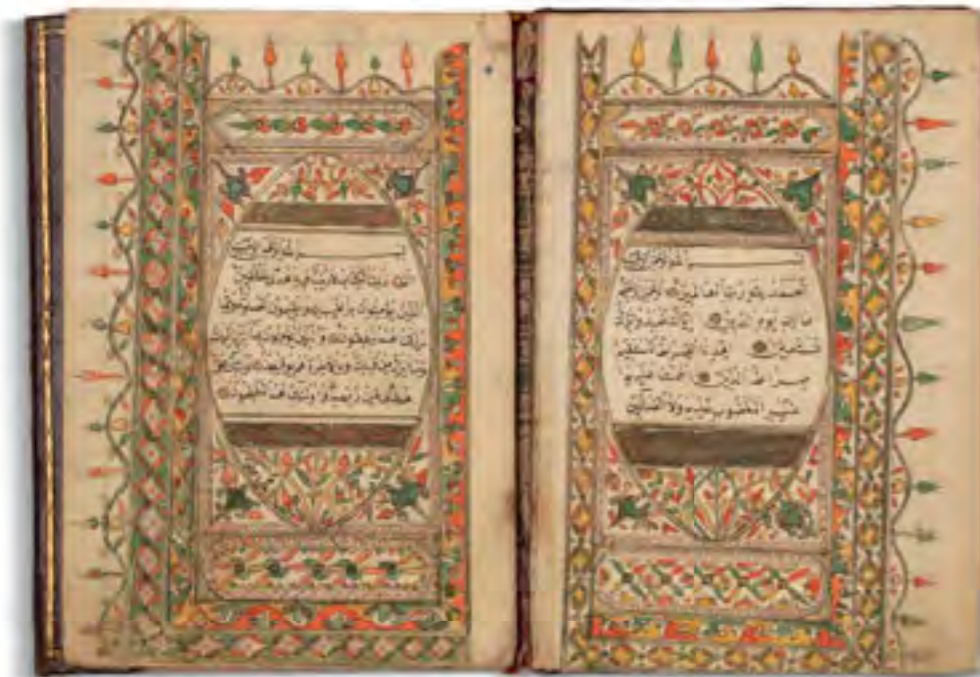 بسم الله الرحمن الرحيم
الحمد لله رب العالمين الرحمن الرحيم
مالك يوم الدين اياك نعبد واياك
نستعين اهدنا الصراط المستقيم
صراط الذين انعمت عليهم
غير المغضوب عليهم ولا الضالين
بسم الله الرحمن الرحيم
الم ذلك الكتاب لا ريب فيه هدى للمتقين
الذين يؤمنون بالغيب ويقيمون الصلوة ومما
رزقناهم ينفقون والذين يؤمنون بما انزل اليك
وما انزل من قبلك وبالاخرة هم يوقنون اولئك
على هدى من ربهم واولئك هم المفلحون